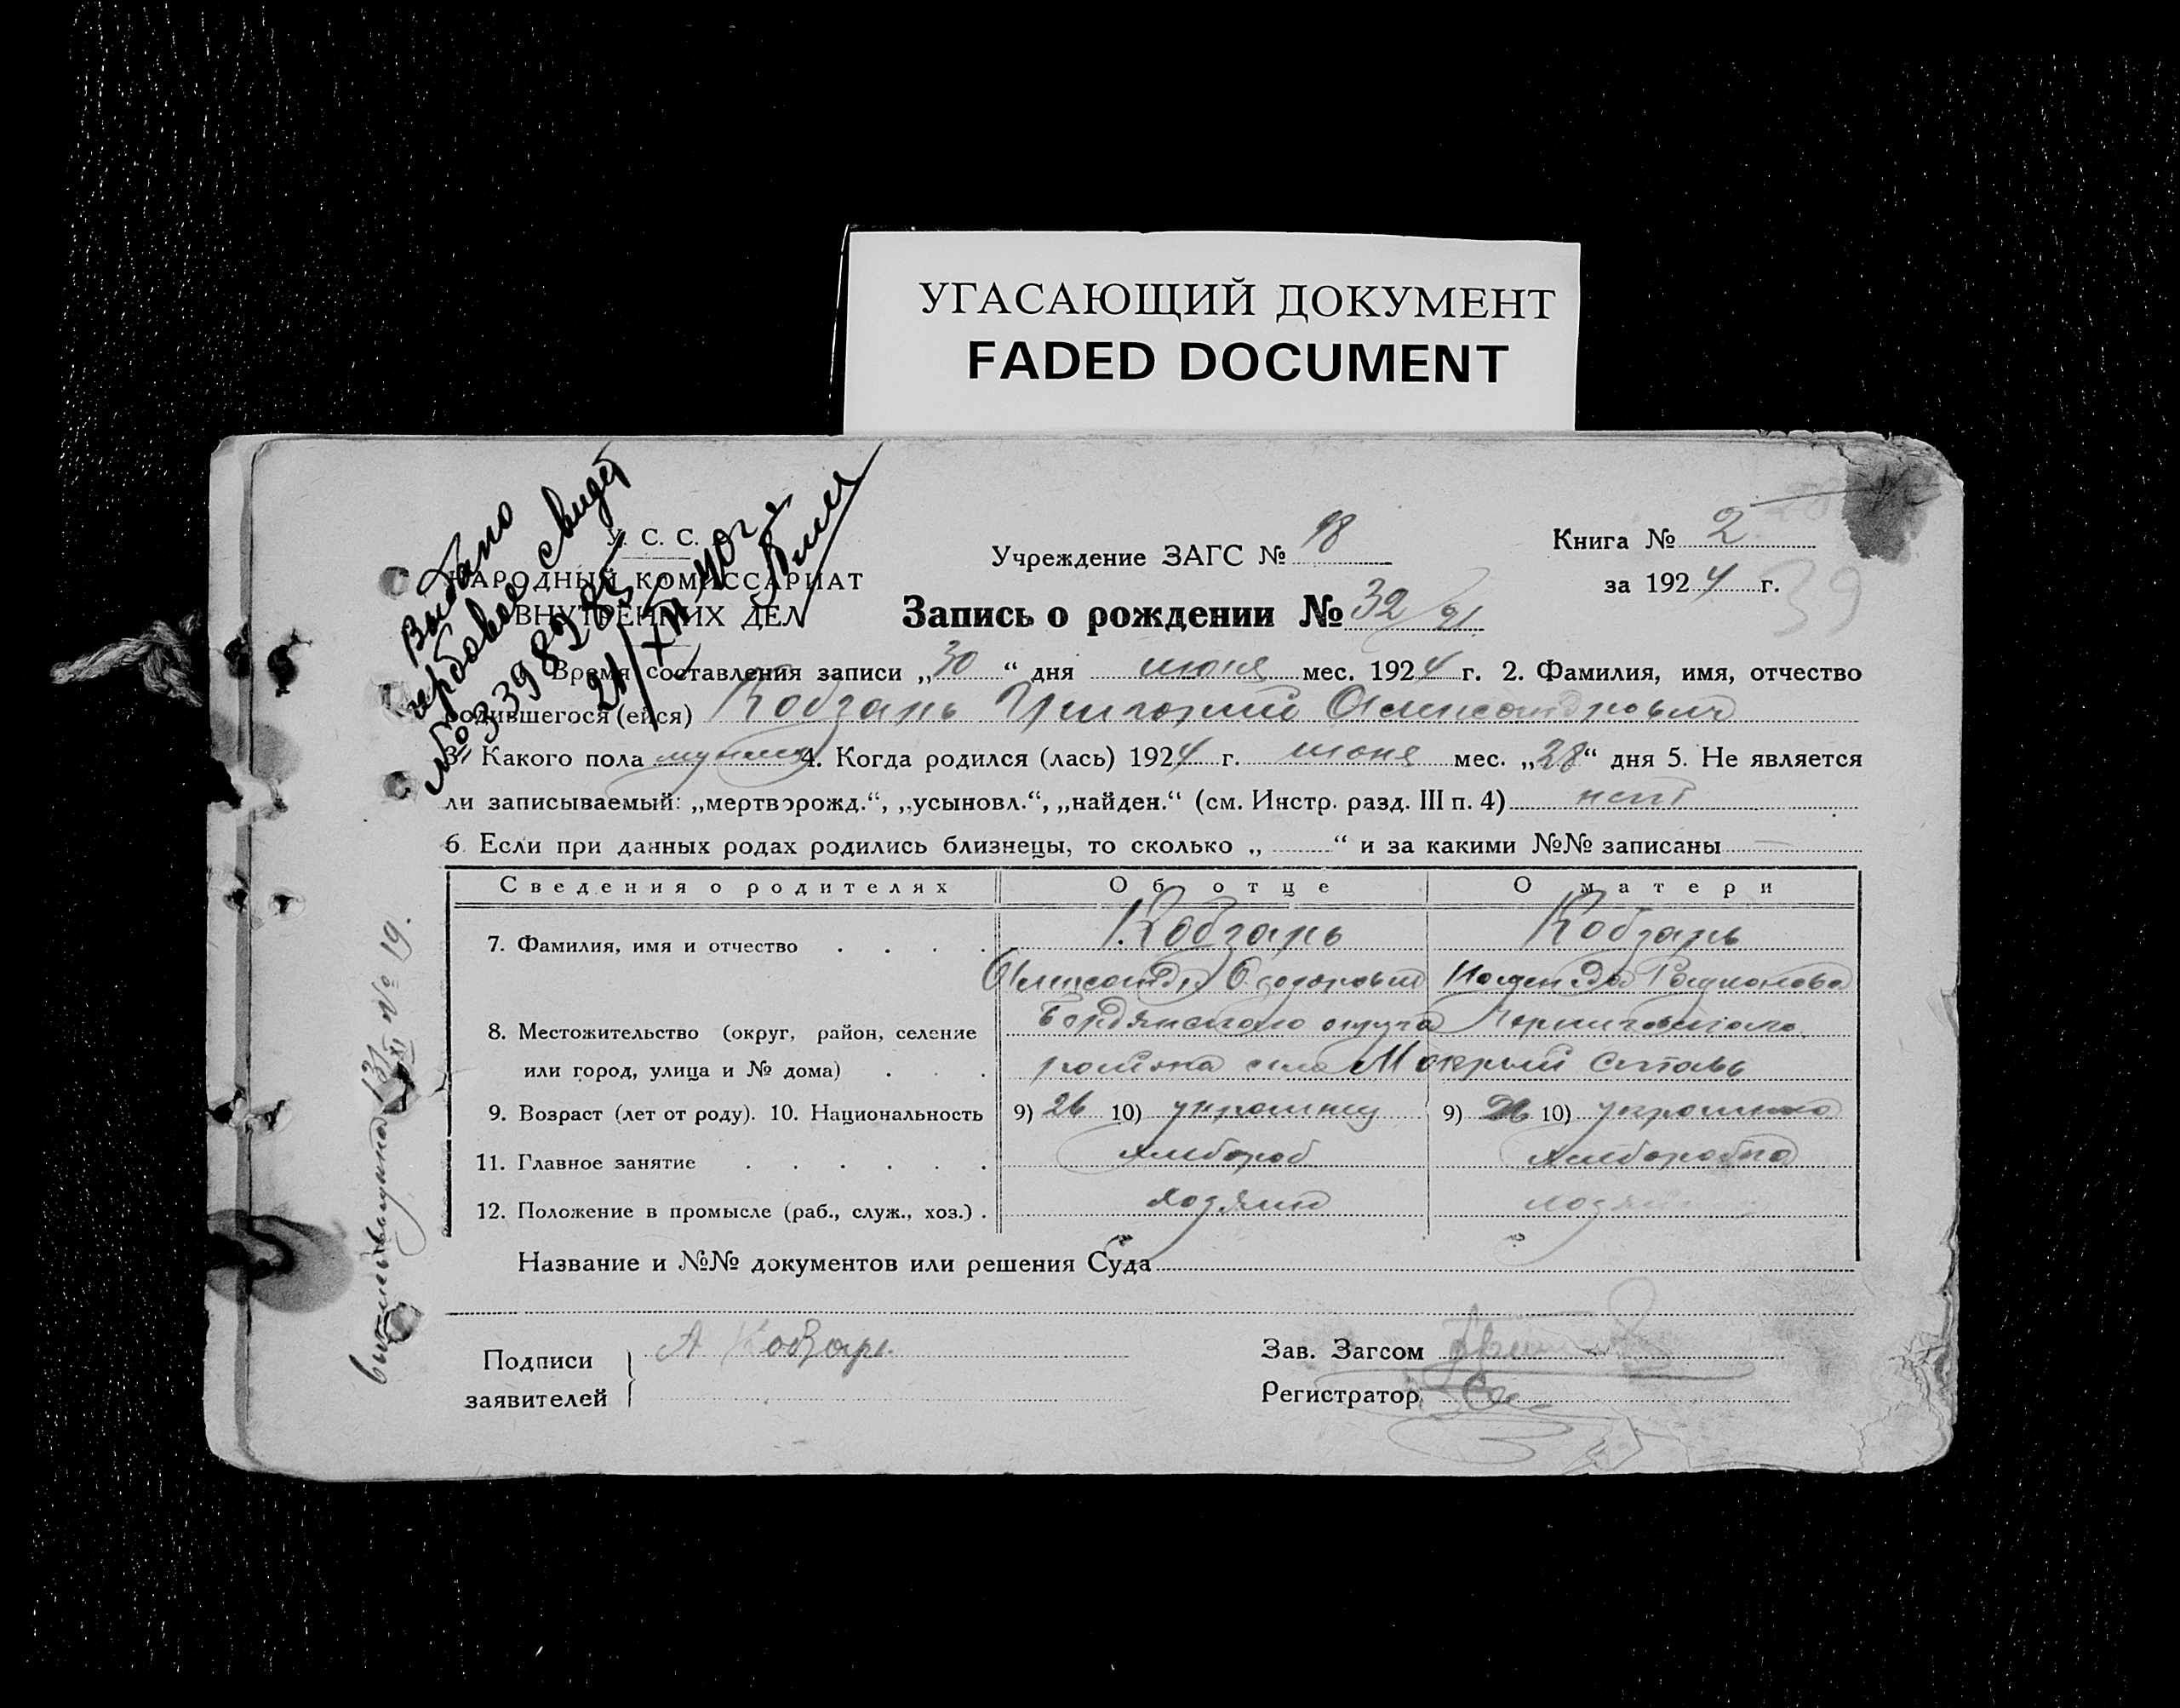 УГАСАЮЩИЙ ДОКУМЕНТ
FADED DOCUMENT
Выдано
гербовое свидет
№
У. С. С. Р.
НАРОДНЫЙ КОМИССАРИАТ
ВНУТРЕННИХ ДЕЛ
Учреждение ЗАГС № 18
Книга № 2
за 1924 г.
39
Запись о рождении № 32/91
Время составления записи „30“ дня июня мес. 1924 г. 2. Фамилия, имя, отчество
родившегося (ейся) Кобзарь Григорий Александрович
3. Какого пола мужск 4. Когда родился (лась) 1924 г. июня мес. „28“ дня 5. Не является
ли записываемый: „мертворожд.“, „усыновл.“, „найден.“ (см. Инстр. разд. III п. 4) нет
6. Если при данных родах родились близнецы, то сколько „ “ и за какими №№ записаны —
Сведения о родителях Об отце О матери
7. Фамилия, имя и отчество Кобзарь Кобзарь
Александр Родионова
8. Местожительство (округ, район, селение Бердянского округа Черниговского
или город, улица и № дома) района села Мокрый Ставъ
9. Возраст (лет от роду). 10. Национальность 9) 26 10) украинец 9) 26 10) украинка
11. Главное занятие хлебороб хлеборобка
12. Положение в промысле (раб., служ., хоз.) хозяин
Название и №№ документов или решения Суда
Подписи заявителей А Кобзарь
Зав. Загсом
Регистратор
№ 19.